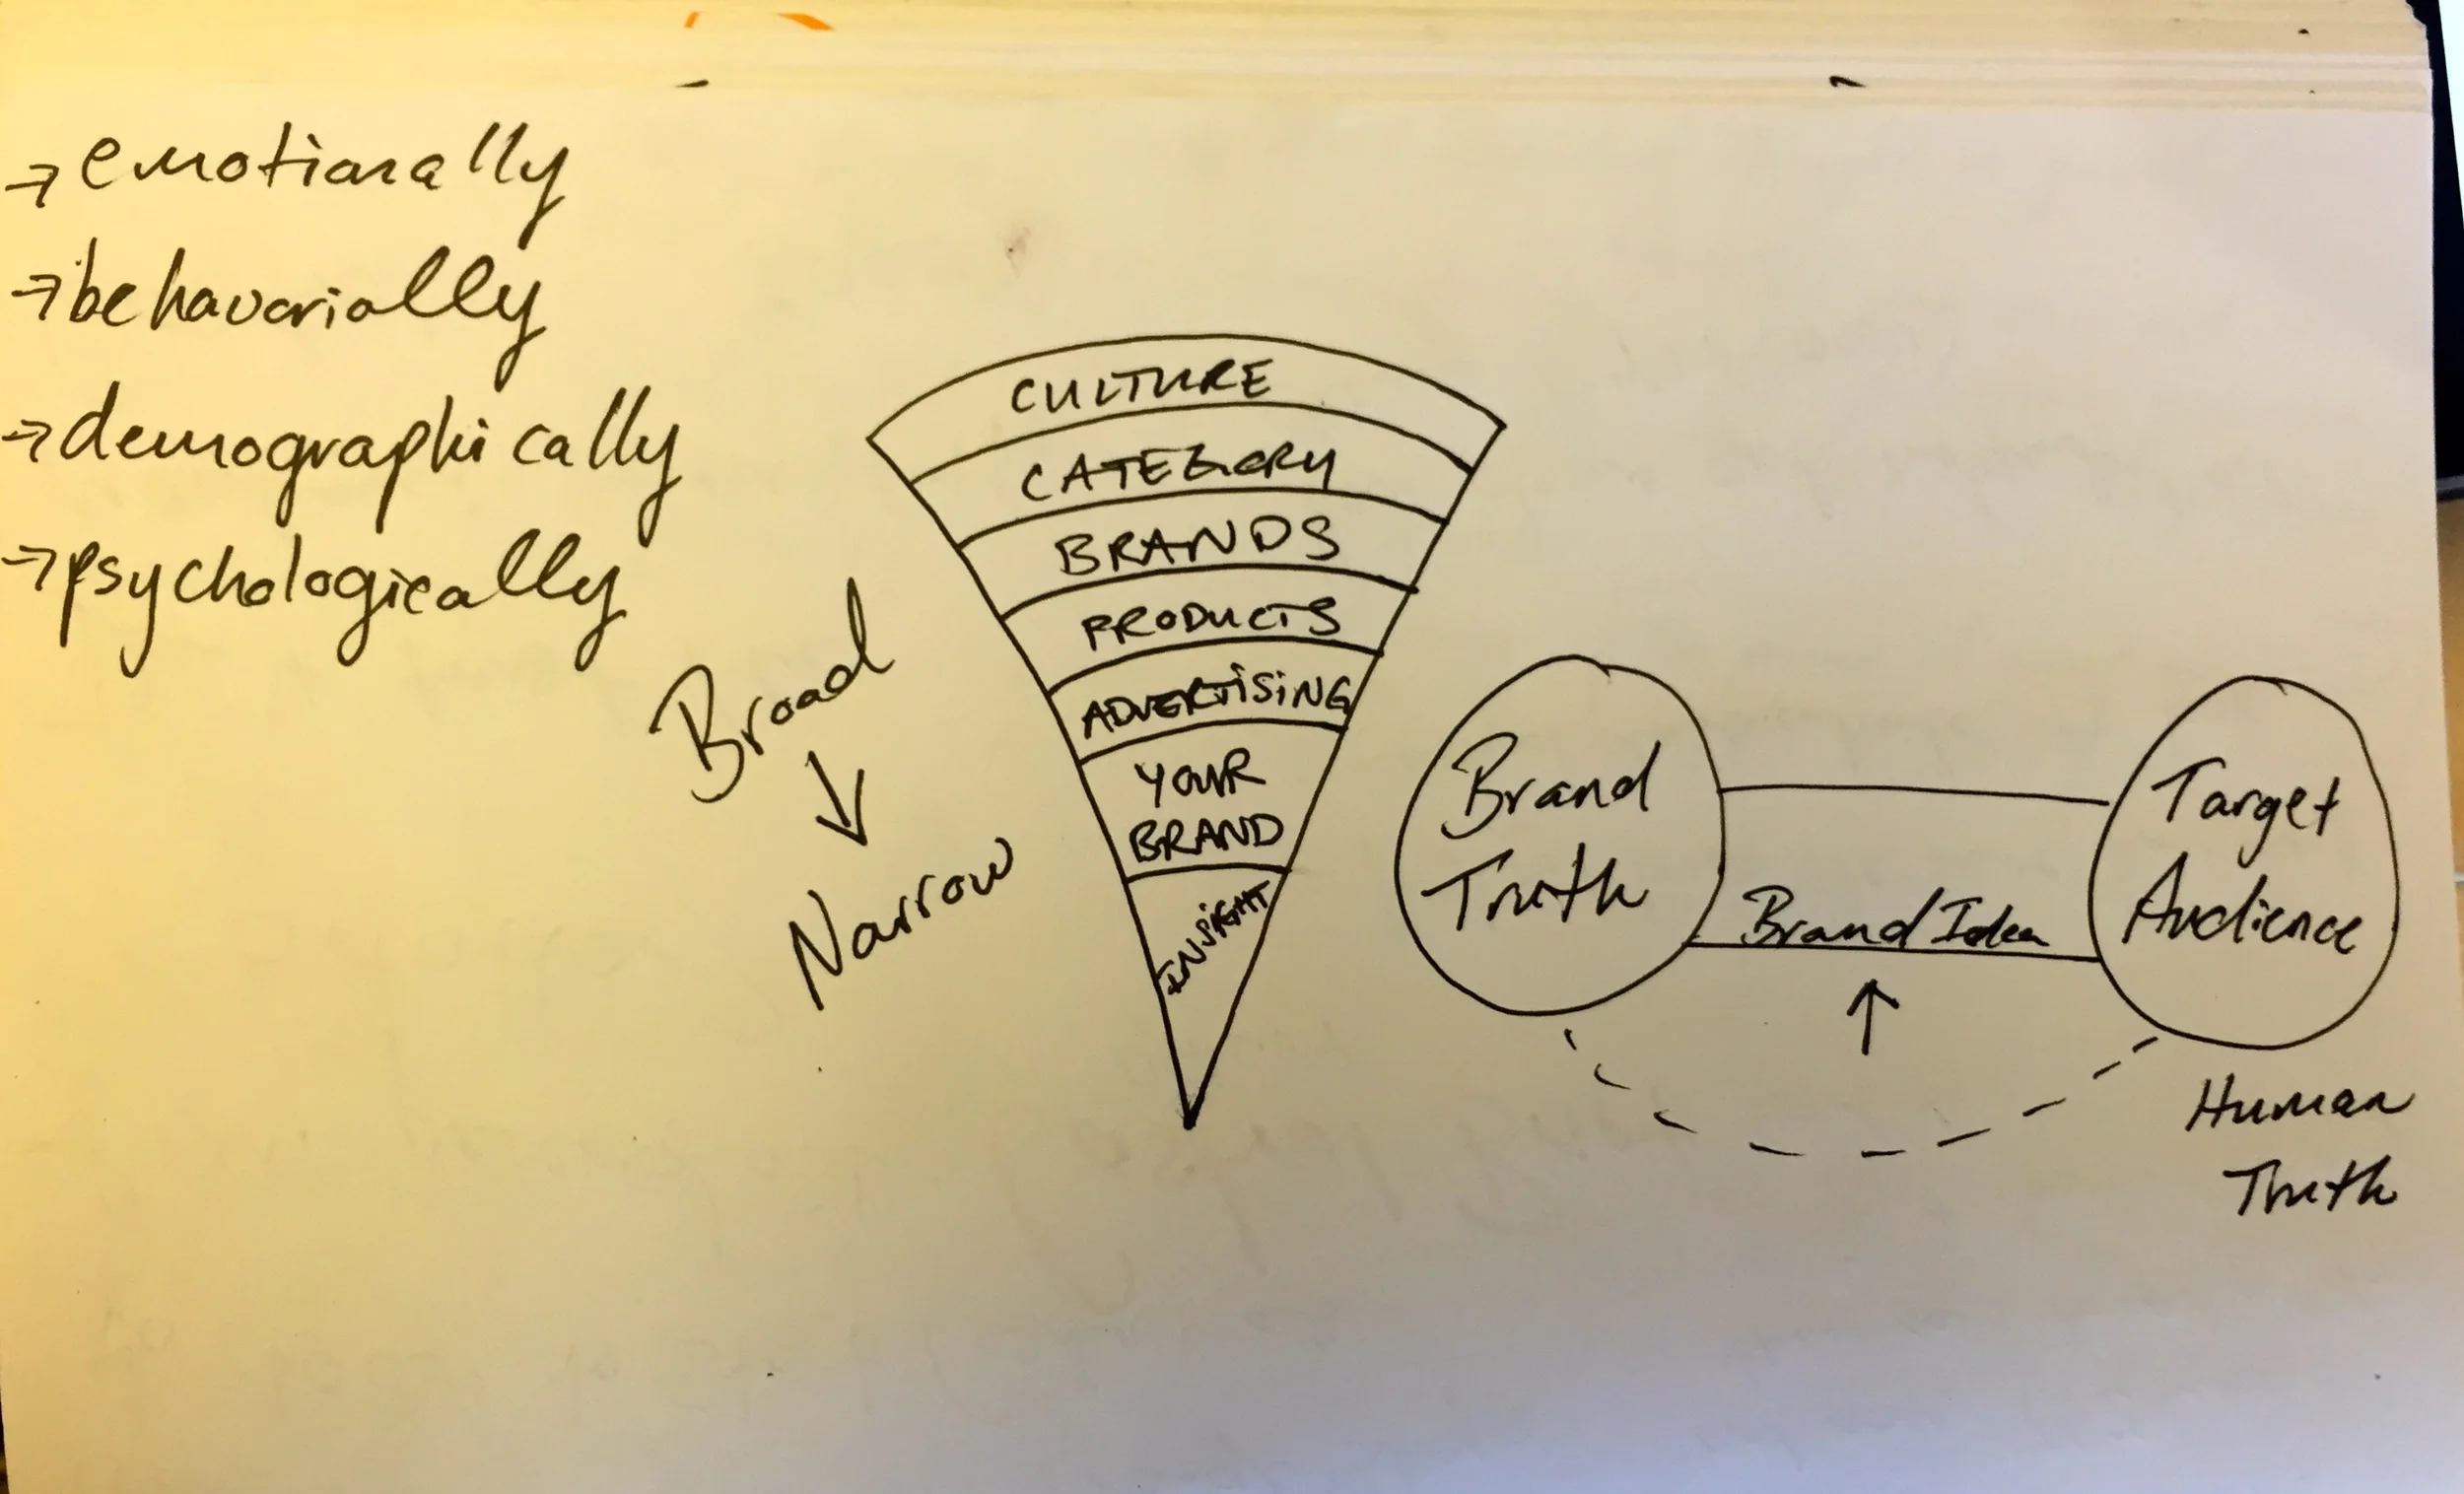 → emotionally
→ behavorially
→ demographically
→ psychologically
Broad
↓
Narrow
CULTURE
CATEGORY
BRANDS
PRODUCTS
ADVERTISING
YOUR
BRAND
INSIGHT
Brand
Truth
Brand Idea
↑
Target
Audience
Human
Truth